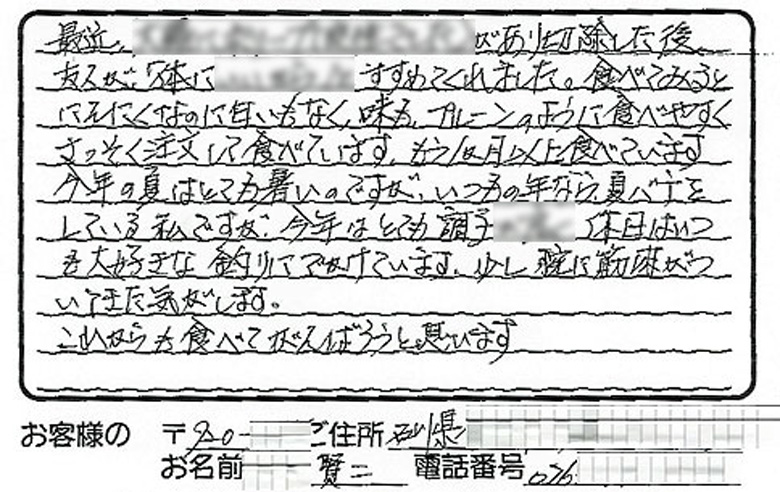 最近、があり切除した後
友人が、体にすすめてくれました。食べてみると
にそにくなのに匂いもなく、味も、プルーンのように食べやすく
さっそく注文して食べています。もう1ヵ月以上食べています
今年の夏はとても暑いのですが、いつもの年なら、夏バテを
している私ですが、今年はとても調子休日はいつ
も大好きな釣りにでかけています。少し腕に筋肉がつ
いてきた気がします。
これからも食べてがんばろうと思います
お客様の 〒920- ご住所 石川県
お名前 賢二 電話番号 076